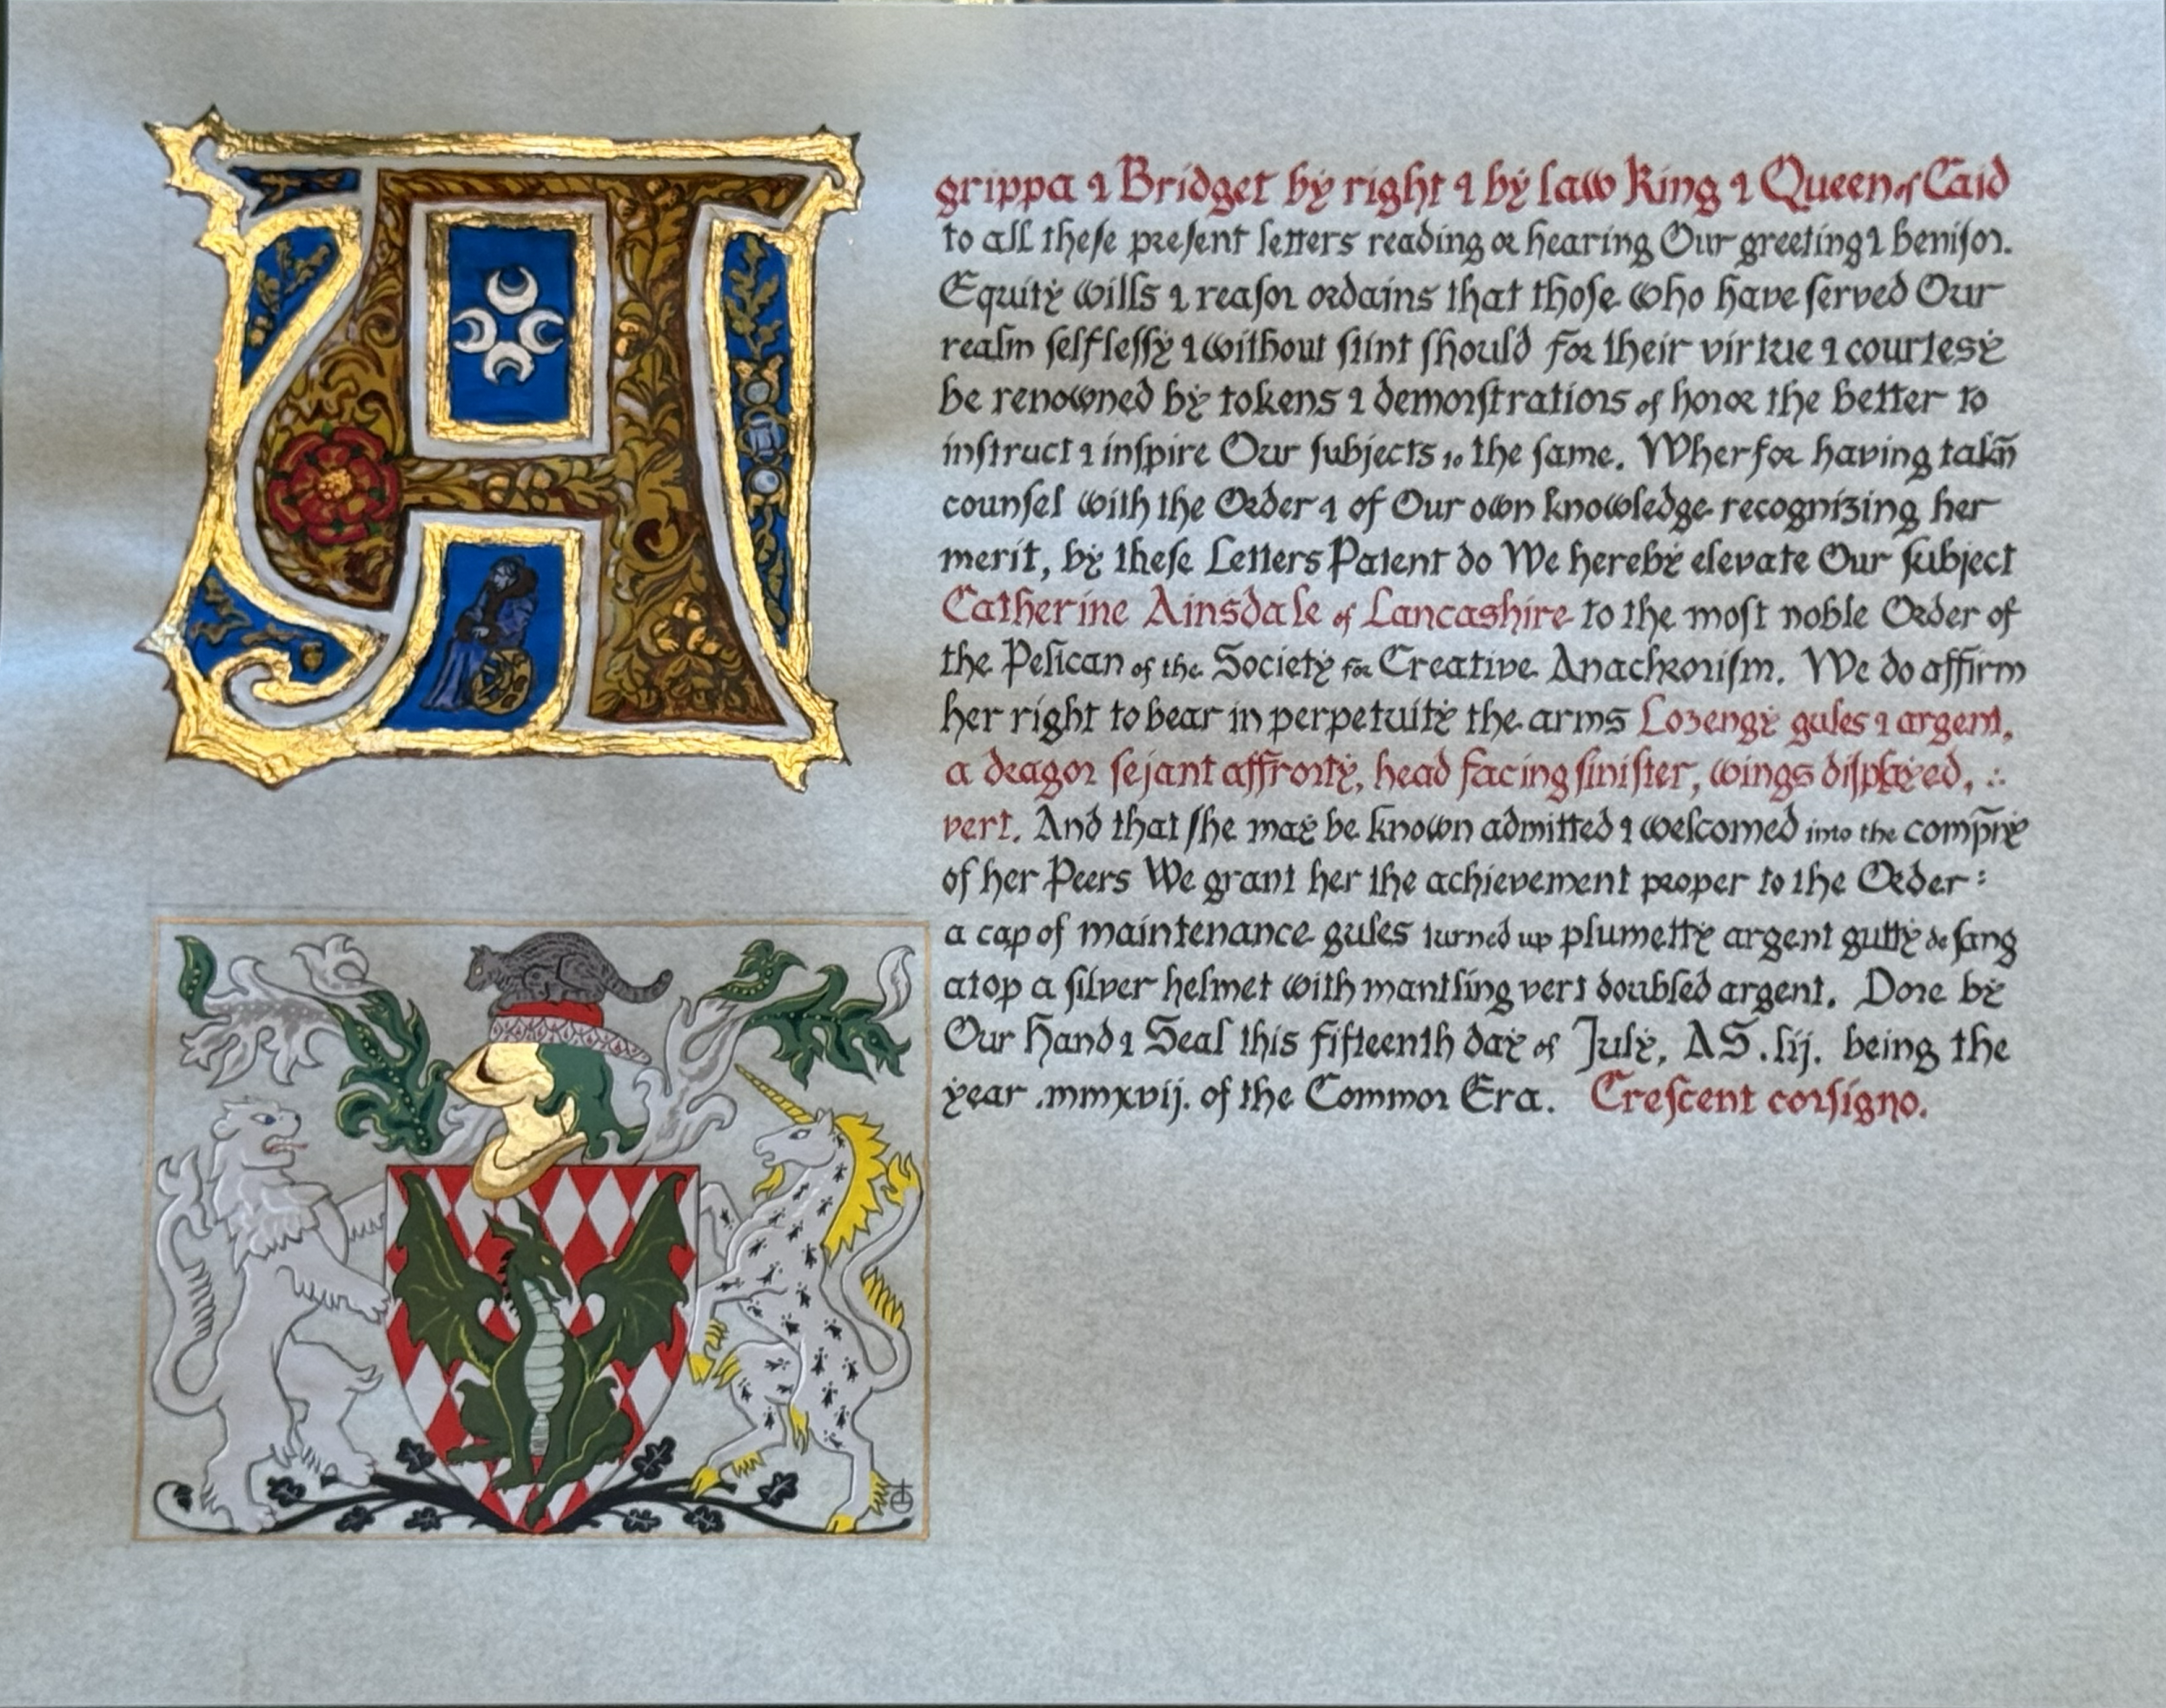 Agrippa & Bridget by right & by law King & Queen of Caid
to all theſe preſent letters reading or hearing Our greeting & beniſon.
Equity wills & reaſon ordains that thoſe who have ſerved Our
realm ſelfleſſy & without ſtint ſhould for their virtue & courtesy
be renowned by tokens & demonſtrations of honor the better to
inſtruct & inſpire Our ſubjects to the ſame. Wherfor having takn̄
counſel with the Order & of Our own knowledge recognizing her
merit, by theſe Letters Patent do We hereby elevate Our ſubject
Catherine Ainsdale of Lancashire to the moſt noble Order of
the Pelican of the Society for Creative Anachroniſm. We do affirm
her right to bear in perpetuity the arms Lozengy gules & argent,
a dragon ſejant affronty, head facing ſiniſter, wings diſplayed, ∴
vert. And that ſhe may be known admitted & welcomed into the comp̄ny
of her Peers We grant her the achievement proper to the Order:
a cap of maintenance gules turned up plumetty argent gutty de ſang
atop a ſilver helmet with mantling vert doubled argent. Done by
Our Hand & Seal this fifteenth day of July, AS .lij. being the
year .mmxvij. of the Common Era. Creſcent conſigno.